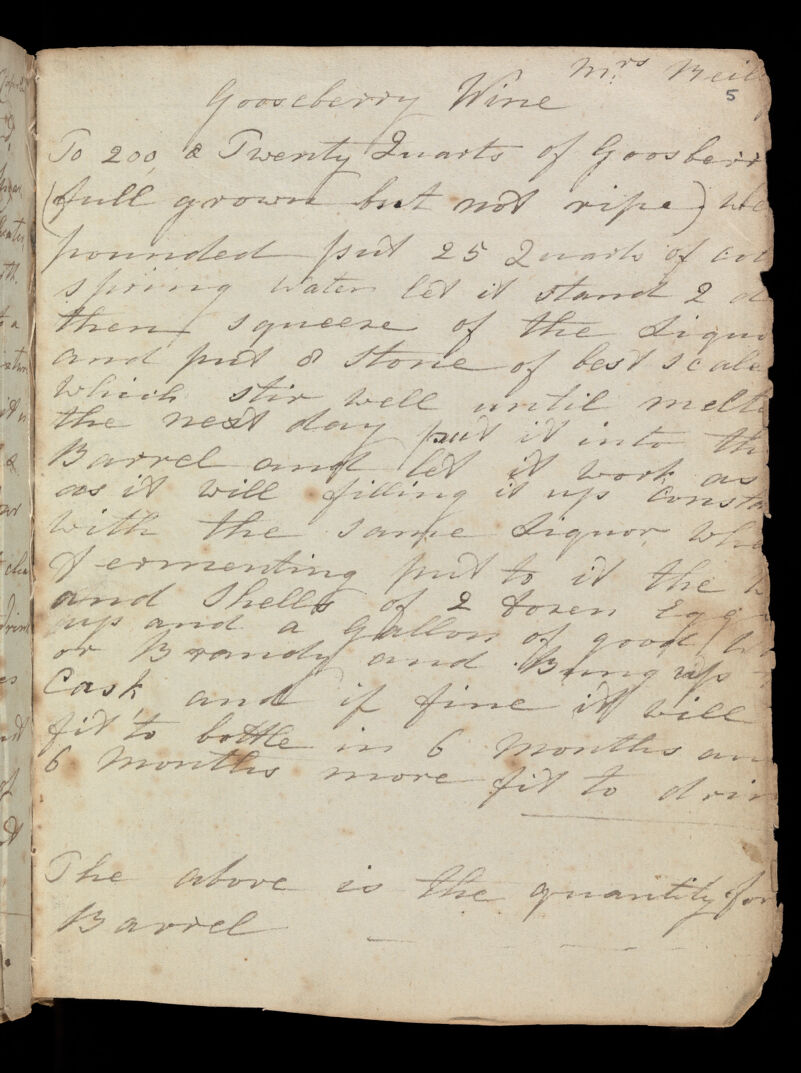 Mrs Reilly
5
Gooseberry Wine
To 200, & Twenty Quarts of Goosberr
(full grown but not ripe) we
pounded put 25 Quarts of col
spring water let it stand 2 d
then squeeze of the Liquo
and put 8 Stone of best scale
which stir well until melt
the next day put it into th
Barrel and let it work as
as it will filling it up Consta
with the same Liquor Whe
Fermenting put to it the
and Shells of 2 dozen Egg
up and a Gallon of good
or Brandy and Bung up
Cask and if fine it will
fit to bottle in 6 Months an
6 Months more fit to drin
The above is the quantity for
Barrel